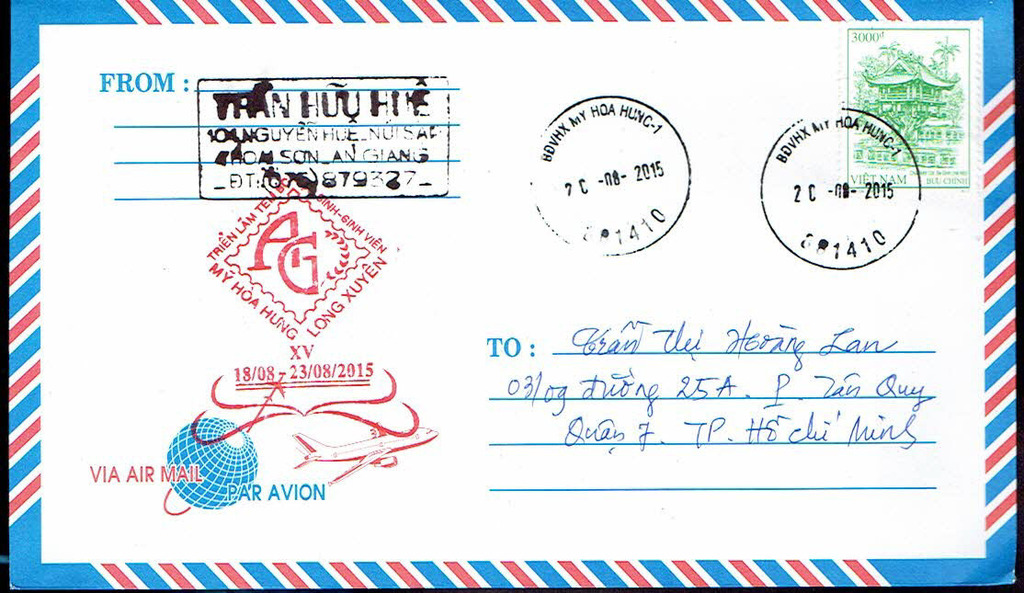 FROM :
TRẦN HỮU HUỆ
NGUYỄN HUỆ_NÚI SẬP
THOẠI SƠN_AN GIANG
_ĐT:(076)879327_
TRIỂN LÃM TEM HỌC SINH-SINH VIÊN
AG
MỸ HÒA HƯNG
LONG XUYÊN
XV
18/08 - 23/08/2015
VIA AIR MAIL
PAR AVION
BĐVHX MY HOA HUNG-1
20 -08- 2015
881410
3000đ
VIỆT NAM
BƯU CHÍNH
BĐVHX MY HOA HUNG-1
20 -08- 2015
881410
TO :
Trần Thị Hoàng Lan
03/09 đường 25A. P. Tân Quy
Quận 7. TP. Hồ Chí Minh